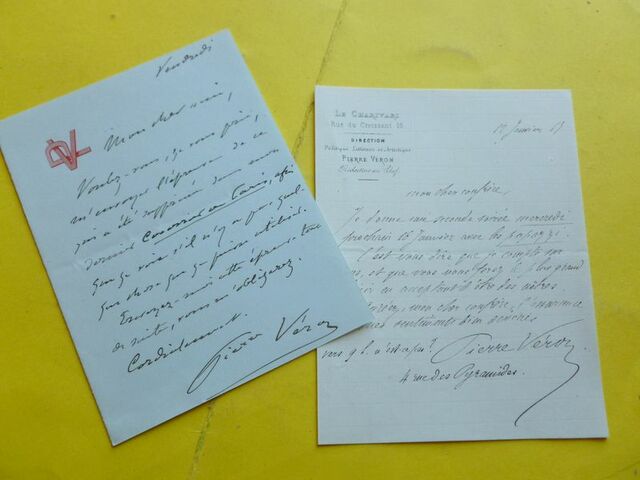 Vendredi
Mon cher ami,
Voulez-vous, je vous prie,
m'envoyer l'épreuve de ce
qui a été supprimé dans mon
dernier Courrier de Paris, afin
que je voie s'il n'y a pas quel-
que chose que je puisse utiliser.
Envoyez-moi cette épreuve tout
de suite, vous m'obligerez.
Cordialement.
Pierre Véron
LE CHARIVARI
Rue du Croissant 16
DIRECTION
Politique Littéraire et Artistique
PIERRE VÉRON
Rédacteur en Chef
Janvier
mon cher confrère,
Je donne une seconde soirée mercredi
prochain 16 Janvier avec les
C'est vous dire que je compte sur
et que vous nous ferez le plus grand
en acceptant d'être des nôtres.
mon cher confrère, l'assurance
sentiments bien
vers 9 h. n'est-ce pas? Pierre Véron
4 rue des Pyramides.